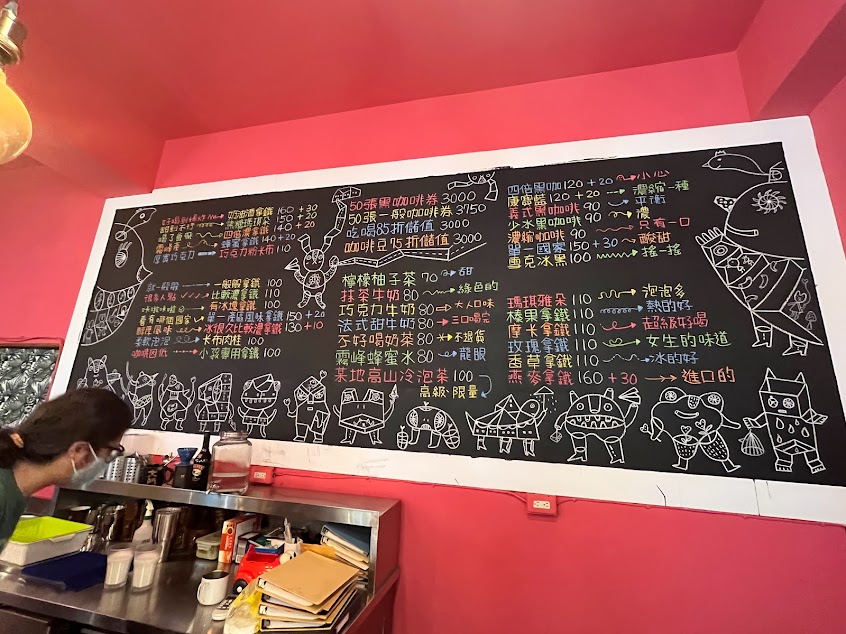 奶油酒拿鐵 160+30
黑糖瑪頂朵 150+20
四倍濃拿鐵 140+20
蜂蜜拿鐵 140+20
厚實巧克力 巧克力瑞卡布 110
就一般般 一般般拿鐵 100
很多人點 比較濃拿鐵 110
咖啡冰喔 有冰塊拿鐵 100
看有哪個國家 單一產區風味拿鐵 150+20
冰很久比較濃拿鐵 130+10
柔軟泡泡 卡布其諾 100
咖啡因低 小孩專用拿鐵 100
50張黑咖啡券 3000
50張一般咖啡券 3750
吃喝85折儲值 3000
咖啡豆75折儲值 3000
檸檬柚子茶 70 甜
抹茶牛奶 80 綠色的
巧克力牛奶 80 大人口味
法式甜牛奶 80 三口喝完
不好喝奶茶 80 不退貨
霧峰蜂蜜水 80 龍眼
某地高山冷泡茶 100
高級·限量
四倍黑咖 120+20 小心
康寶藍 120+20 濃縮一種
義式黑咖啡 90 平衡
少冰黑咖啡 90 濃
濃縮咖啡 90 只有一口
單一國寨 150+30 酸甜
雪克冰黑 100 搖一搖
瑪琪雅朵 110 泡泡多
榛果拿鐵 110 熱的好
摩卡拿鐵 110 超級好喝
玫瑰拿鐵 110 女生的味道
香草拿鐵 110 冰的好
燕麥拿鐵 160+30 進口的